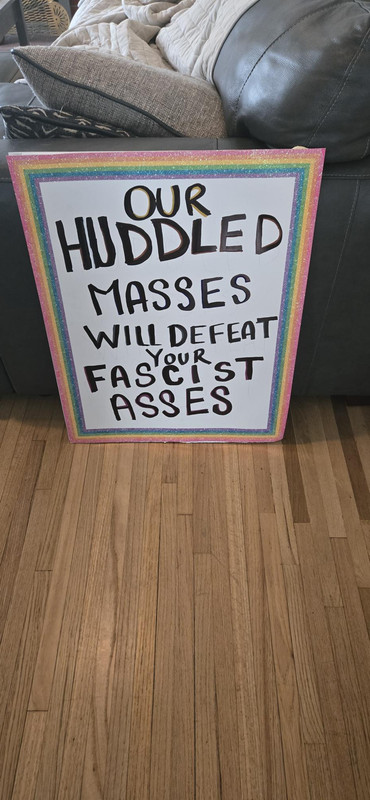 OUR
HUDDLED
MASSES
WILL DEFEAT
YOUR
FASCIST
ASSES